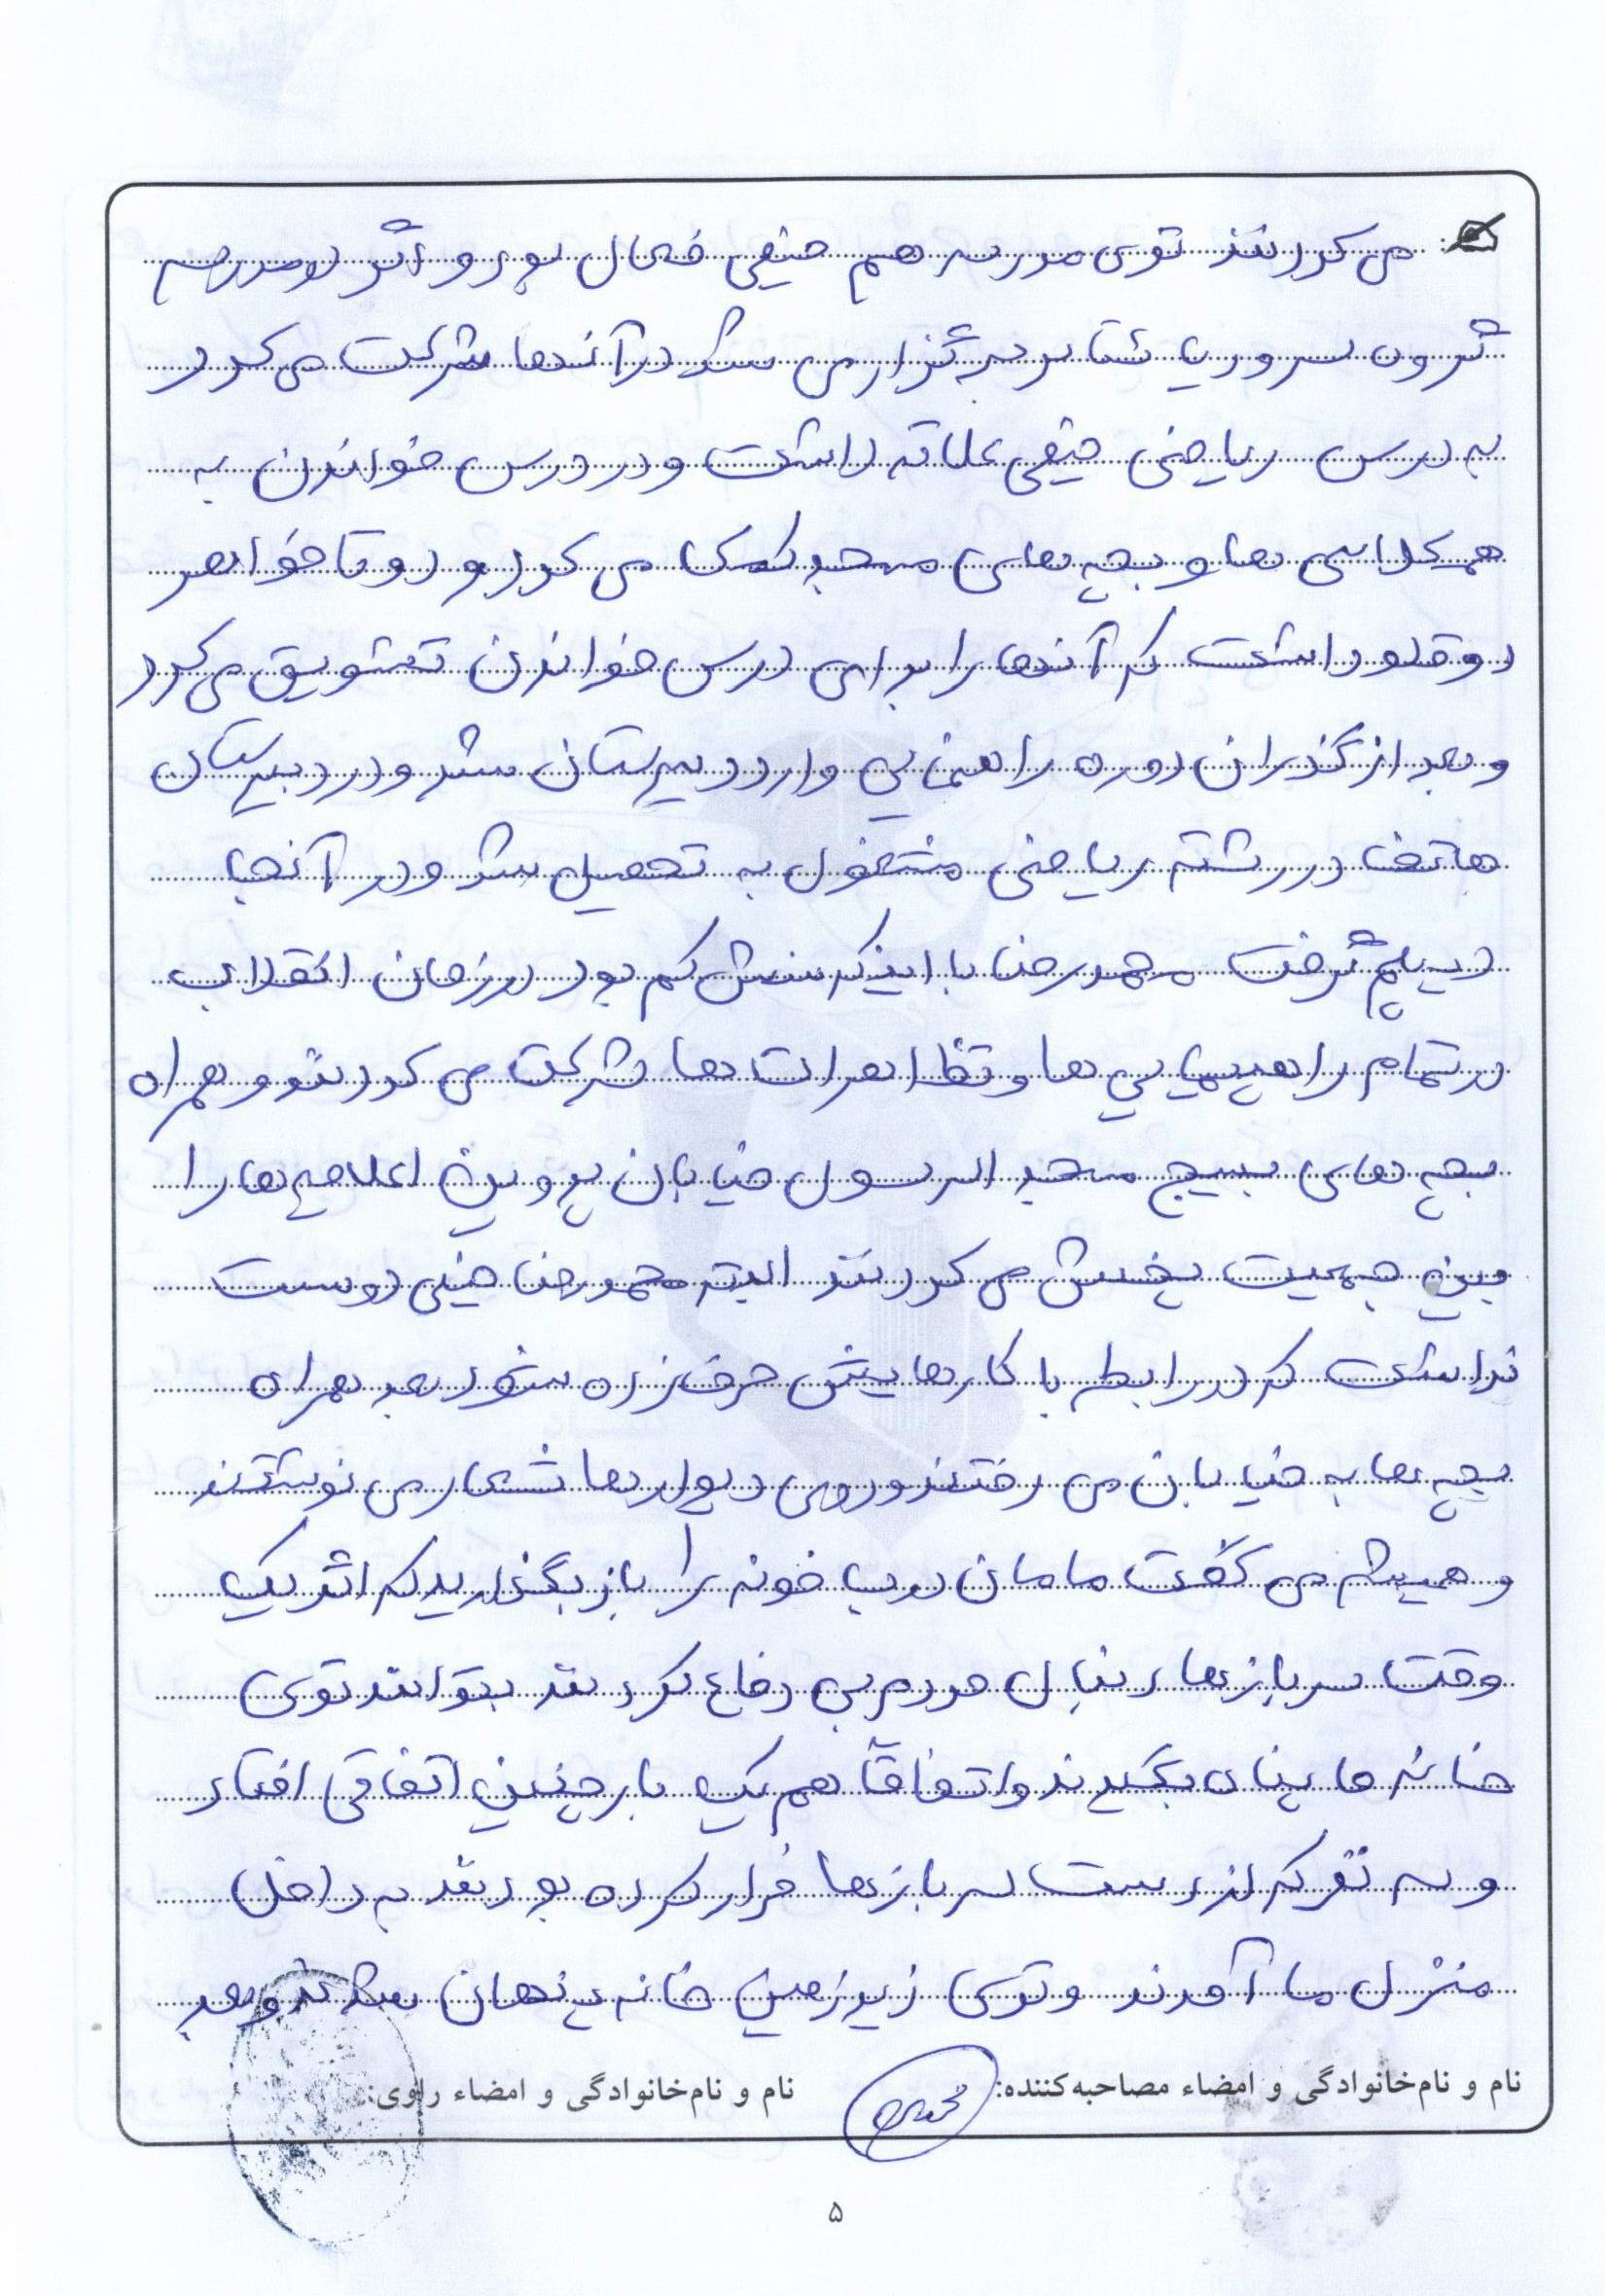 می کردند توی مدرسه هم خیلی فعال بود و اگر تو مدرسه
گروه سرود یا تئاتر برگزار می شد در آنها شرکت می کرد
به درس ریاضی خیلی علاقه داشت و در درس خواندن به
همکلاسی ها و بچه های مسجد کمک می کرد و دو تا خواهر
دوقلو داشت که آنها را برای درس خواندن تشویق می کرد
و بعد از گذران دوره راهنمایی وارد دبیرستان شد و در دبیرستان
هاتف در رشته ریاضی مشغول به تحصیل شد و در آنجا
دیپلم گرفت محمدرضا با اینکه سنش کم بود در زمان انقلاب
در تمام راهپیمایی ها و تظاهرات ها شرکت می کردند و همراه
بچه های بسیج مسجد الرسول خیابان پروین اعلامیه ها را
بین جمعیت پخش می کردند البته محمدرضا خیلی دوست
نداشت که در رابطه با کارهایش حرف زده شود بعد همراه
بچه ها به خیابان می رفتند و روی دیوارها شعار می نوشتند
و همیشه می گفت مامان درب خونه را باز بگذارید که اگر یک
وقت سربازها دنبال مردم بی دفاع کردند بتوانند توی
خانه ما پناه بگیرند و اتفاقاً هم یک بار چنین اتفاقی افتاد
و سه نفر که از دست سربازها فرار کرده بودند به داخل
منزل ما آمدند و توی زیرزمین خانه پنهان شدند و بعد
نام و نام‌خانوادگی و امضاء مصاحبه‌کننده: نام و نام‌خانوادگی و امضاء راوی:
۵